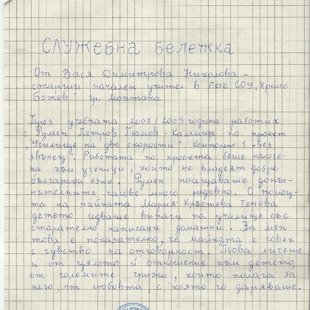 СЛУЖЕБНА БЕЛЕЖКА
От Вася Димитрова Николова –
старши начален учител в Пето СОУ „Христо
Ботев" гр. Монтана
През учебната 2008/2009 година работих
с Румен Петров
по проект
„Училище на две скорости" компонент 1 „Без
звънец". Работата по проекта беше насоче-
на към ученици, които не владеят добре
български език. Румен посещаваше допъл-
нителните часове много редовно. С помощ-
та на майката Мария Кръстева Тонова
детето идваше винаги на училище със
старателно написани домашни. За мен
това е показателно, че майката е човек
с чувство на отговорност. Това личеше
и от цялото ѝ отношение към детето,
от големите грижи, които полага за
него, от любовта с която го даряваше.